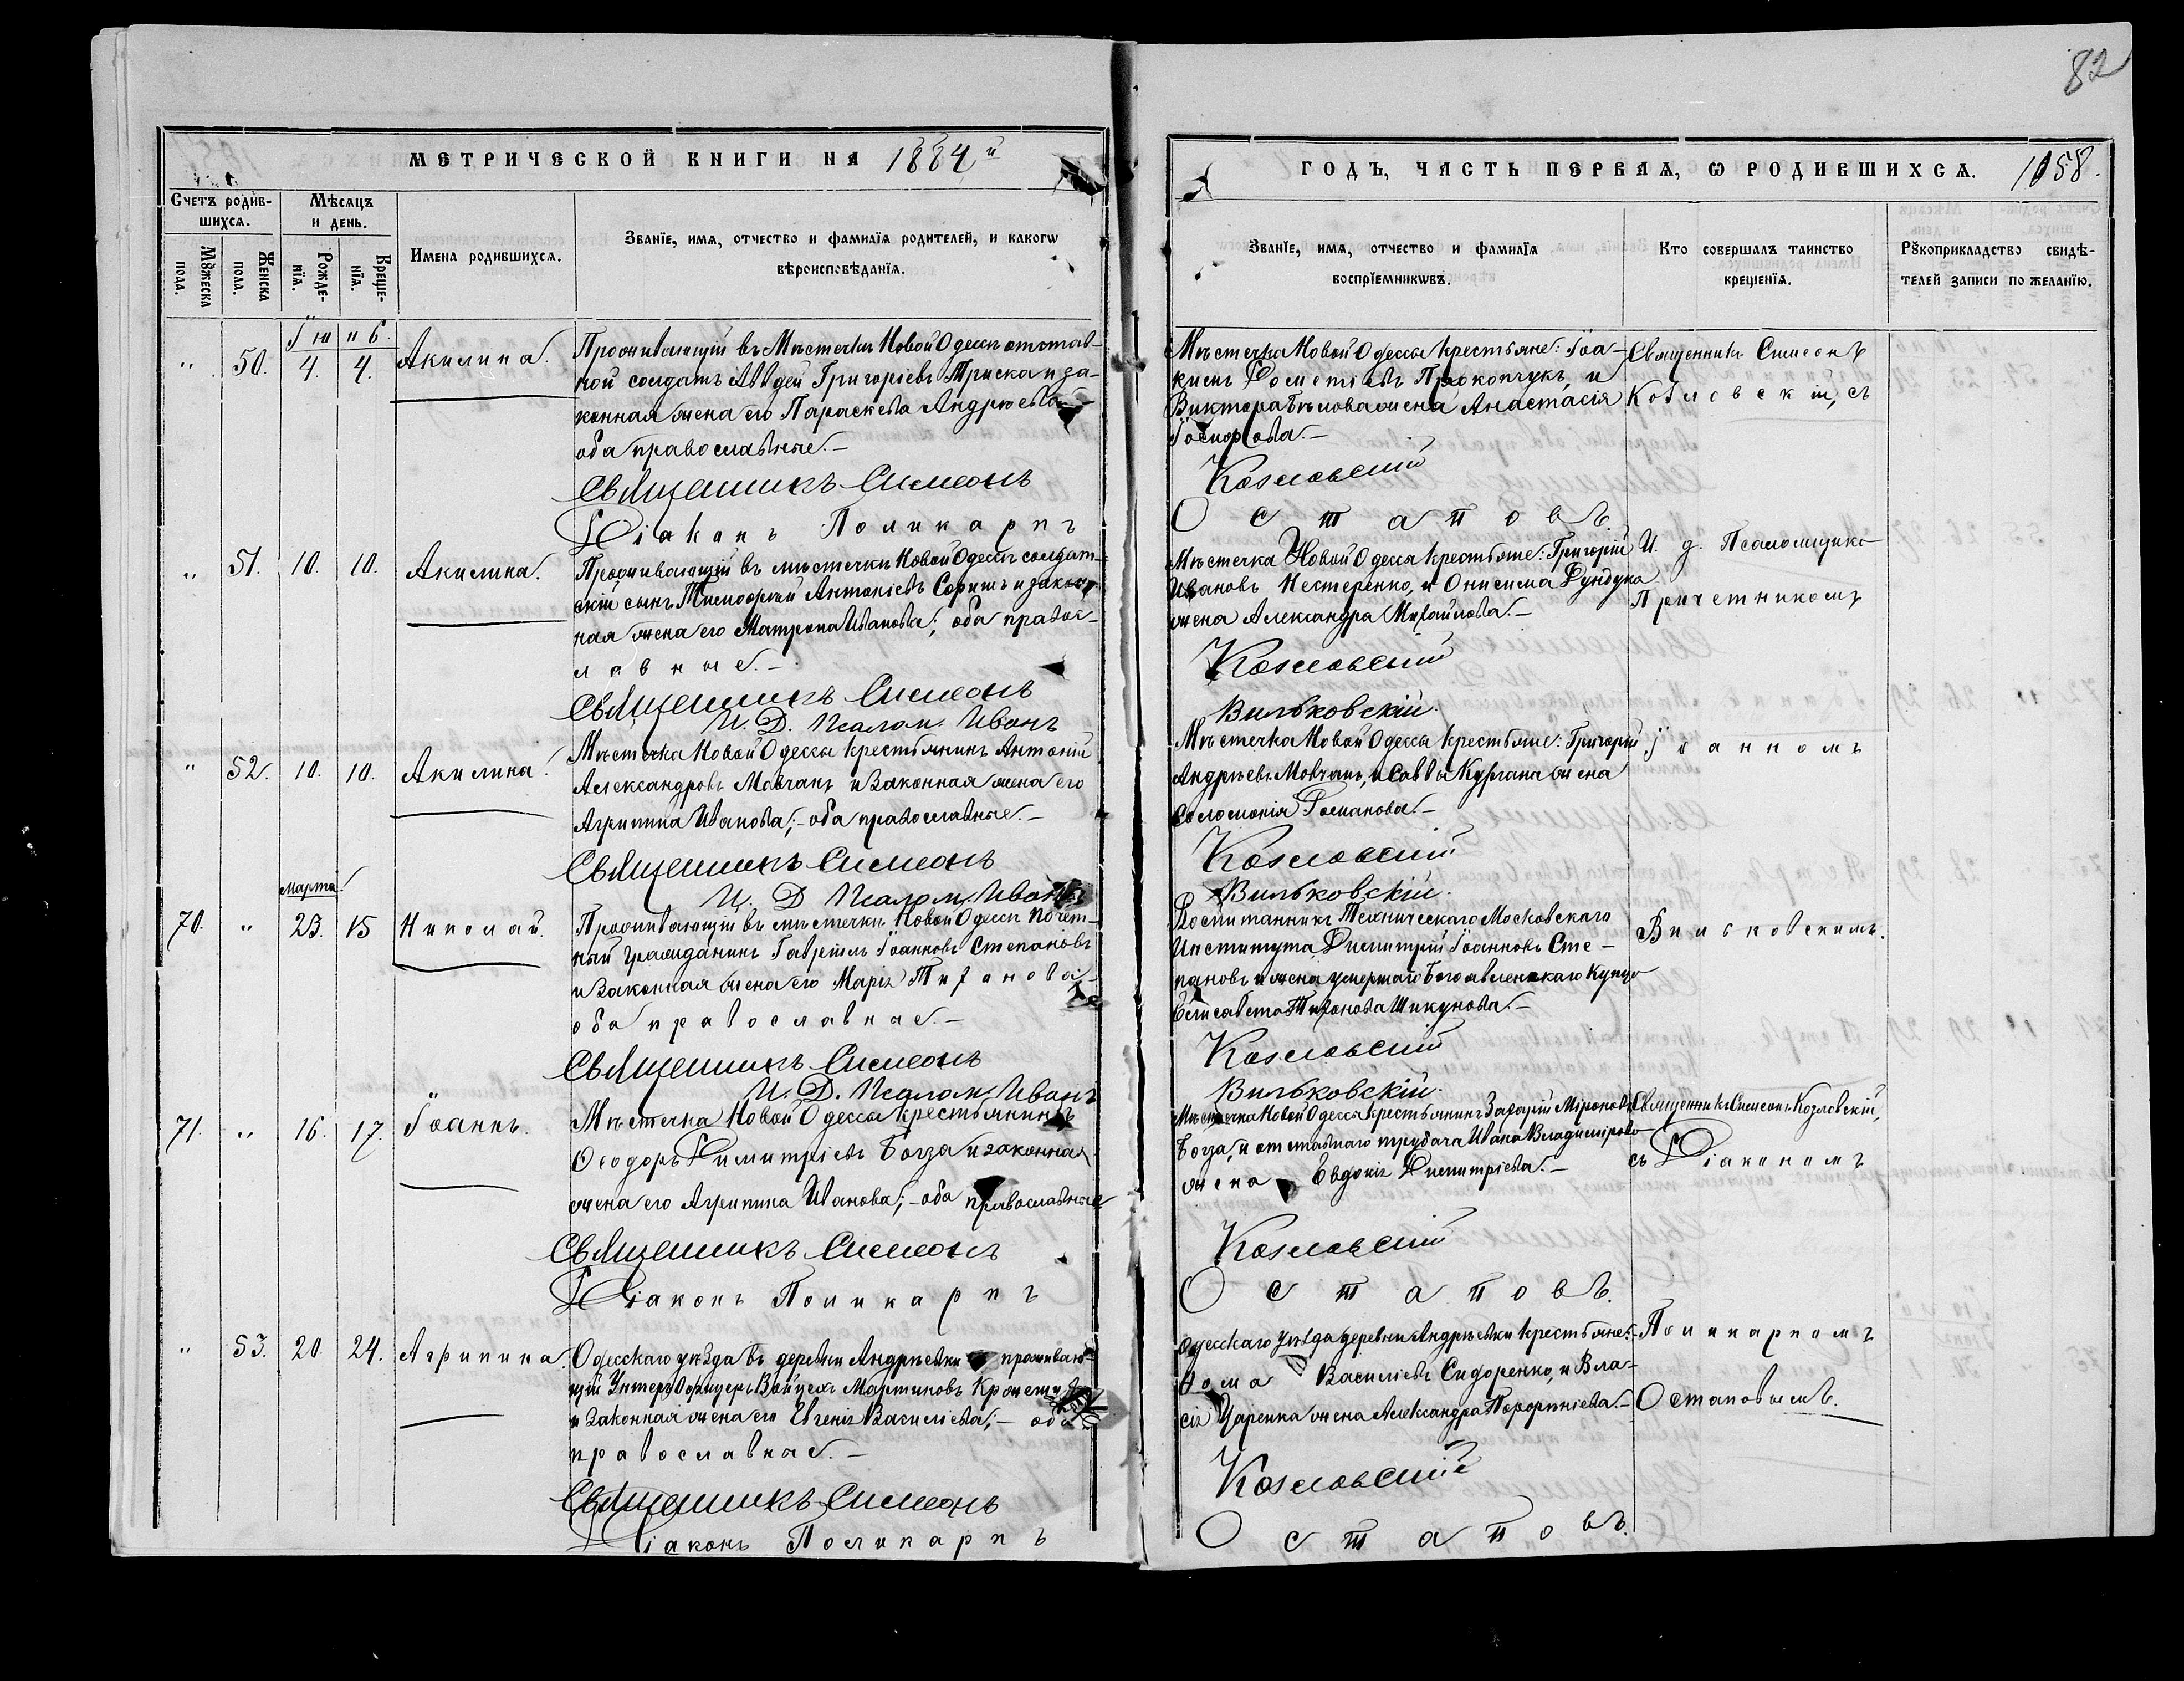 82
МЕТРИЧЕСКОЙ КНИГИ НА 1884й
ГОДЪ, ЧАСТЬ ПЕРВАЯ, Ѡ РОДИВШИХСЯ. 1058.
Счетъ родившихся.
Мѣсяцъ и день.
Мꙋжеска пола.
Женска пола.
Рожденїя.
Крещенїя.
Имена родившихся.
Званїе, имя, отчество и фамилїя родителей, и какогѡ
вѣроисповѣданїя.
Званїе, имя, отчество и фамилїя
воспрїемникѡвъ.
Кто совершалъ таинство
крещенїя.
Рꙋкоприкладство свидѣ-
телей записи по желанїю.
Iюнь.
" 50. 4. 4. Акилина.
Проживающій въ Мѣстечкѣ Новой Одессѣ отстав-
ной солдатъ Авдей Григоріевъ Триска и за-
конная жена его Параскева Андрѣева
оба православные.-
Священникъ Симеонъ
Діаконъ Поликарпъ
Мѣстечка Новой Одессы крестьяне: Іоа-
кимъ Прокопчукъ, и
Виктора Бѣлова жена Анастасія
Козловскій
Остаповъ.
Священникъ Симеонъ
Козловскій, съ
" 51. 10. 10. Акилина.
Проживающій въ мѣстечкѣ Новой Одессѣ солдат-
скій сынъ Тимофей Антоніевъ и закон-
ная жена его Матрона Иванова; оба правос-
лавные.-
Священникъ Симеонъ
И. Д. Псалом. Иванъ
Мѣстечка Новой Одесса крестьяне: Григорій
Ивановъ Нестеренко, и Онисима Дундука
жена Александра Михайлова.-
Козловскій
Вильковскій.
И. д. Псаломщика
Причетникомъ
" 52. 10. 10. Акилина.
Мѣстечка Новой Одессы крестьянинъ Антоній
Александровъ Мовчанъ и законная жена его
Агрипина Иванова; - оба православные.-
Священникъ Симеонъ
И. Д. Псалом. Иванъ
Мѣстечка Новой Одессы крестьяне: Григорій
Андрѣевъ Мовчанъ, и Саввы Кургана жена
Соломонія Романова.-
Козловскій
Вильковскій.
Іоанномъ
марта.
70. " 23. 15 Николай.
Проживающій въ мѣстечкѣ Новой Одессѣ почет-
ный гражданинъ Гавріилъ Іоанновъ Степановъ
и законная жена его Марія Тихонова
оба православные.-
Священникъ Симеонъ
И. Д. Псалом. Иванъ
Воспитанникъ Техническаго Московскаго
Института Димитрій Іоанновъ Сте-
пановъ и жена умершаго Богоявленскаго Купца
Елисавета Тихонова Шикунова.-
Козловскій
Вильковскій.
Вильковскимъ.
71. " 16. 17. Іоаннъ.
Мѣстечка Новой Одессы крестьянинъ
Ѳеодоръ Димитріевъ Богза и законная
жена его Агрипина Иванова; - оба православные
Священникъ Симеонъ
Діаконъ Поликарпъ
Мѣстечка Новой Одессы крестьянинъ Захарій Мироновъ
Богза, и отставнаго трубача Ивана Владимірова
жена Евдокія Димитріева.-
Козловскій
Остаповъ.
Священникъ Симеонъ Козловскій,
съ Діакономъ
" 53. 20. 24. Агрипина.
Одесскаго уѣзда въ деревни Андрѣевки проживаю-
щій Унтеръ Офицеръ Войцехъ Мартиновъ
и законная жена его Евгенія Василіева; - оба
православные.-
Священникъ Симеонъ
Діаконъ Поликарпъ
Одесскаго уѣзда деревни Андрѣевки крестьяне:-
Ѳома Василіевъ Сидоренко, и Вла-
сія Царенка жена Александра Порфиріева.-
Козловскій
Остаповъ.
Поликарпомъ
Остаповымъ.